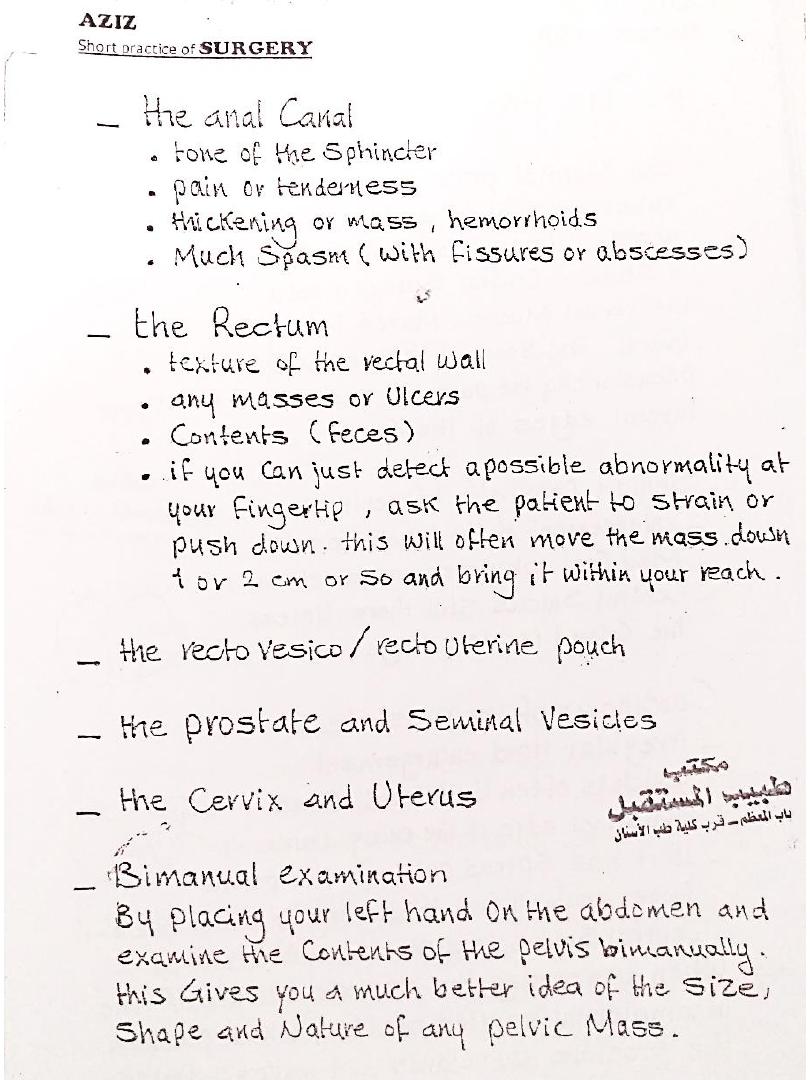 AZIZ
Short practice of SURGERY
– the anal Canal
• tone of the Sphincter
• pain or tenderness
• thickening or mass , hemorrhoids
• Much Spasm ( with fissures or abscesses)
– the Rectum
• texture of the rectal wall
• any masses or Ulcers
• Contents (feces)
• if you can just detect apossible abnormality at
your fingertip , ask the patient to strain or
push down. this will often move the mass.down
1 or 2 cm or so and bring it within your reach .
– the recto vesico / recto uterine pouch
– the prostate and Seminal Vesicles
– the Cervix and Uterus
مكتب
طبيب المستقبل
باب المعظم – قرب كلية طب الأسنان
– Bimanual examination
By placing your left hand On the abdomen and
examine the Contents of the pelvis bimanually .
this Gives you a much better idea of the Size,
Shape and Nature of any pelvic Mass .